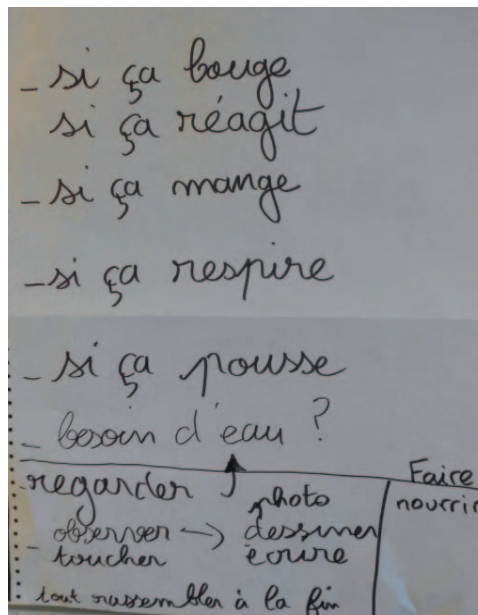 - si ça bouge
si ça réagit
- si ça mange
- si ça respire
- si ça pousse
- besoin d'eau ?
regarder
photo
- observer → dessiner
toucher écrire
tout rassembler à la fin
Faire
nourrir